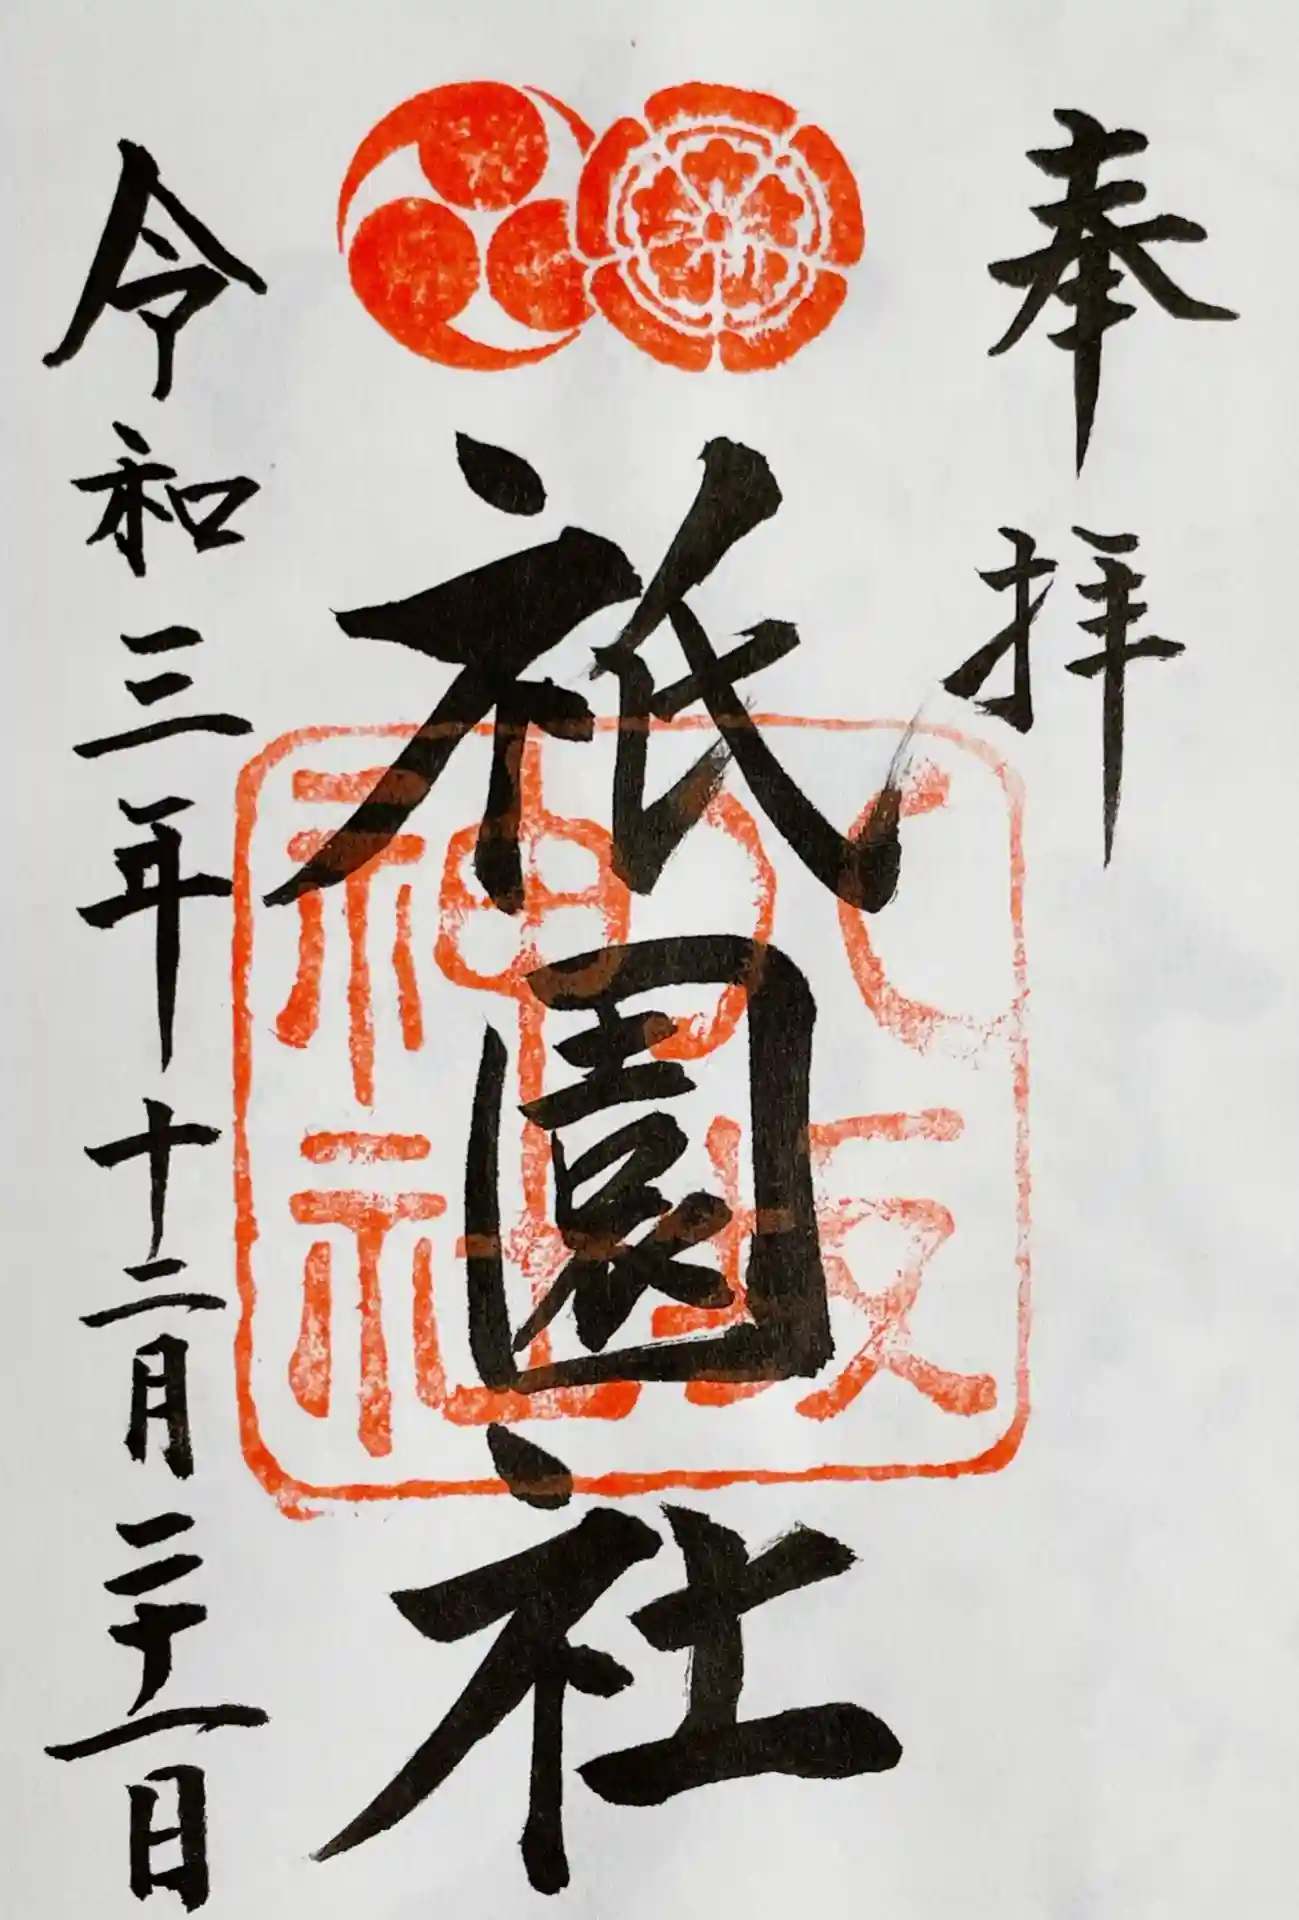 奉拝
祇園社
八坂
神社
令和三年十二月二十一日